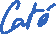 Cató